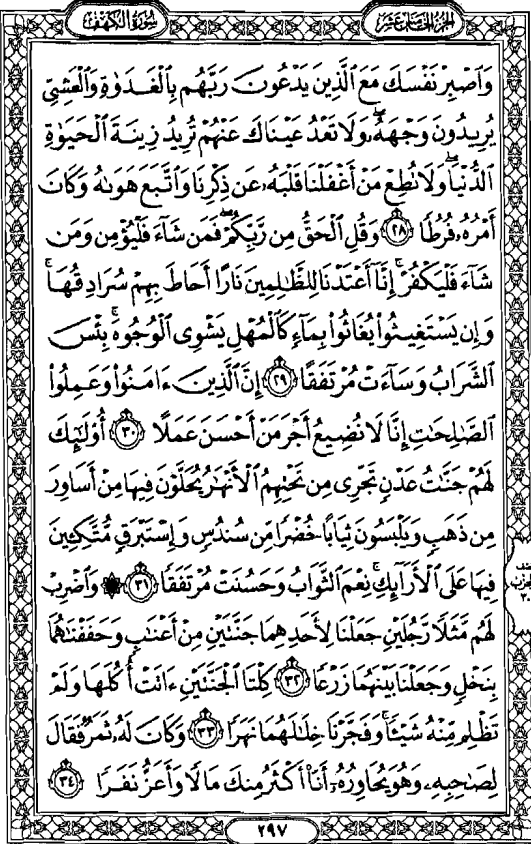 سُورَةُ الْكَهْفِ
الجُزْءُ الخَامِسَ عَشَرَ
وَاصْبِرْ نَفْسَكَ مَعَ الَّذِينَ يَدْعُونَ رَبَّهُم بِالْغَدَوٰةِ وَالْعَشِيِّ
يُرِيدُونَ وَجْهَهُۥ ۖ وَلَا تَعْدُ عَيْنَاكَ عَنْهُمْ تُرِيدُ زِينَةَ الْحَيَوٰةِ
الدُّنْيَا ۖ وَلَا تُطِعْ مَنْ أَغْفَلْنَا قَلْبَهُۥ عَن ذِكْرِنَا وَاتَّبَعَ هَوَىٰهُ وَكَانَ
أَمْرُهُۥ فُرُطًا ٢٨ وَقُلِ الْحَقُّ مِن رَّبِّكُمْ ۖ فَمَن شَآءَ فَلْيُؤْمِن وَمَن
شَآءَ فَلْيَكْفُرْ ۚ إِنَّآ أَعْتَدْنَا لِلظَّٰلِمِينَ نَارًا أَحَاطَ بِهِمْ سُرَادِقُهَا ۚ
وَإِن يَسْتَغِيثُوا۟ يُغَاثُوا۟ بِمَآءٍ كَالْمُهْلِ يَشْوِى الْوُجُوهَ ۚ بِئْسَ
الشَّرَابُ وَسَآءَتْ مُرْتَفَقًا ٢٩ إِنَّ الَّذِينَ ءَامَنُوا۟ وَعَمِلُوا۟
الصَّٰلِحَٰتِ إِنَّا لَا نُضِيعُ أَجْرَ مَنْ أَحْسَنَ عَمَلًا ٣٠ أُو۟لَٰٓئِكَ
لَهُمْ جَنَّٰتُ عَدْنٍ تَجْرِى مِن تَحْتِهِمُ الْأَنْهَٰرُ يُحَلَّوْنَ فِيهَا مِنْ أَسَاوِرَ
مِن ذَهَبٍ وَيَلْبَسُونَ ثِيَابًا خُضْرًا مِّن سُندُسٍ وَإِسْتَبْرَقٍ مُّتَّكِـِٔينَ
فِيهَا عَلَى الْأَرَآئِكِ ۚ نِعْمَ الثَّوَابُ وَحَسُنَتْ مُرْتَفَقًا ٣١ ۞ وَاضْرِبْ
لَهُم مَّثَلًا رَّجُلَيْنِ جَعَلْنَا لِأَحَدِهِمَا جَنَّتَيْنِ مِنْ أَعْنَٰبٍ وَحَفَفْنَٰهُمَا
بِنَخْلٍ وَجَعَلْنَا بَيْنَهُمَا زَرْعًا ٣٢ كِلْتَا الْجَنَّتَيْنِ ءَاتَتْ أُكُلَهَا وَلَمْ
تَظْلِم مِّنْهُ شَيْـًٔا ۚ وَفَجَّرْنَا خِلَٰلَهُمَا نَهَرًا ٣٣ وَكَانَ لَهُۥ ثَمَرٌ فَقَالَ
لِصَٰحِبِهِۦ وَهُوَ يُحَاوِرُهُۥٓ أَنَا۠ أَكْثَرُ مِنكَ مَالًا وَأَعَزُّ نَفَرًا ٣٤
٢٩٧